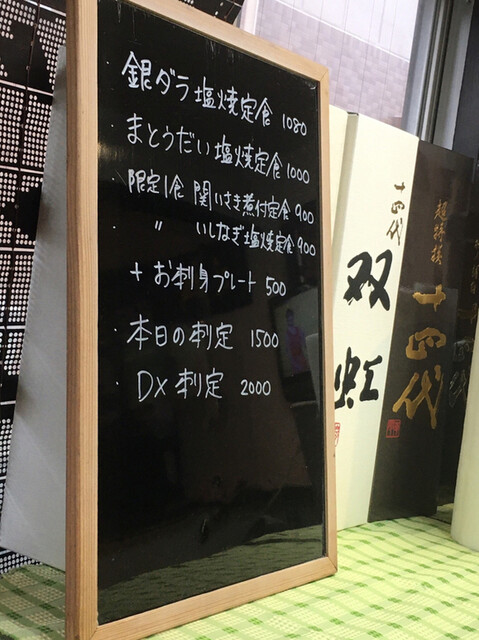 銀ダラ塩焼定食 1080
まとうだい塩焼定食 1000
限定1食 関いさき煮付定食 900
〃 いしなぎ塩焼定食 900
+お刺身プレート 500
・本日の刺定 1500
・DX刺定 2000
十四代
双虹
超特撰
十四代